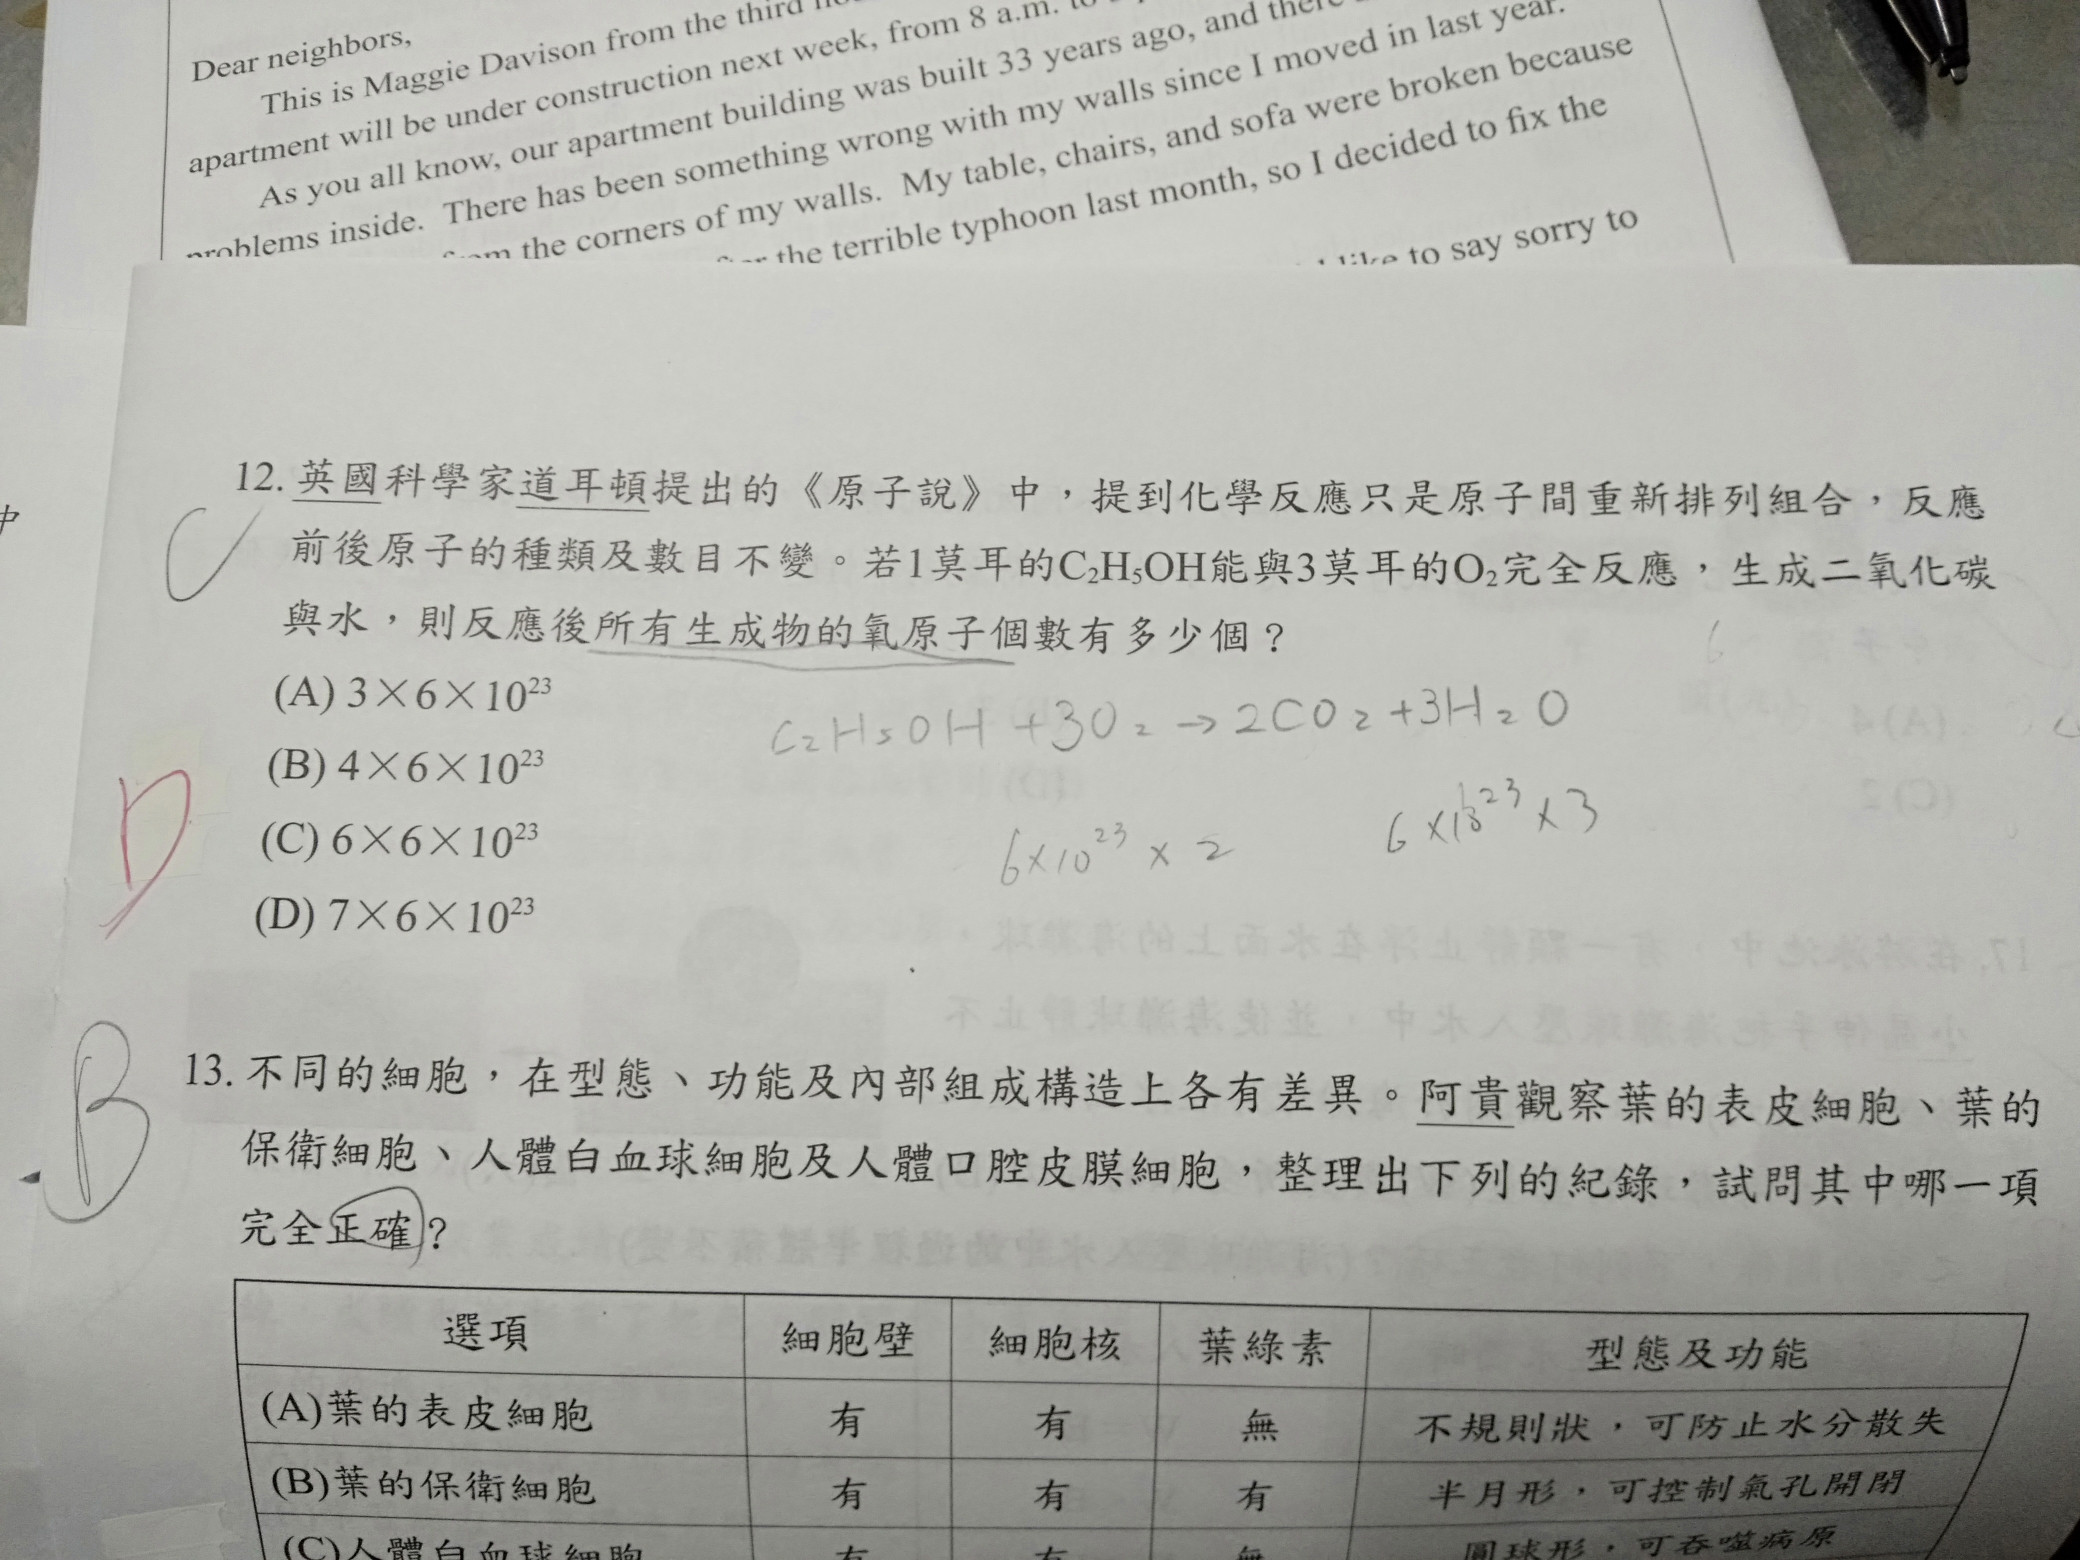 Dear neighbors,
This is Maggie Davison from the third
apartment will be under construction next week, from 8 a.m. to
As you all know, our apartment building was built 33 years ago, and there
problems inside. There has been something wrong with my walls since I moved in last year.
from the corners of my walls. My table, chairs, and sofa were broken because
the terrible typhoon last month, so I decided to fix the
like to say sorry to
中
12. 英國科學家道耳頓提出的《原子說》中，提到化學反應只是原子間重新排列組合，反應
前後原子的種類及數目不變。若1莫耳的C₂H₅OH能與3莫耳的O₂完全反應，生成二氧化碳
與水，則反應後所有生成物的氧原子個數有多少個？
C
(A) 3×6×10²³
(B) 4×6×10²³
(C) 6×6×10²³
(D) 7×6×10²³
D
C₂H₅OH +3O₂ → 2CO₂ +3H₂O
6×10²³ × 2
6×10²³ × 3
B
13. 不同的細胞，在型態、功能及內部組成構造上各有差異。阿貴觀察葉的表皮細胞、葉的
保衛細胞、人體白血球細胞及人體口腔皮膜細胞，整理出下列的紀錄，試問其中哪一項
完全正確？
選項 細胞壁 細胞核 葉綠素 型態及功能
(A)葉的表皮細胞 有 有 無 不規則狀，可防止水分散失
(B)葉的保衛細胞 有 有 有 半月形，可控制氣孔開閉
(C)人體白血球細胞 有 有 無 圓球形，可吞噬病原